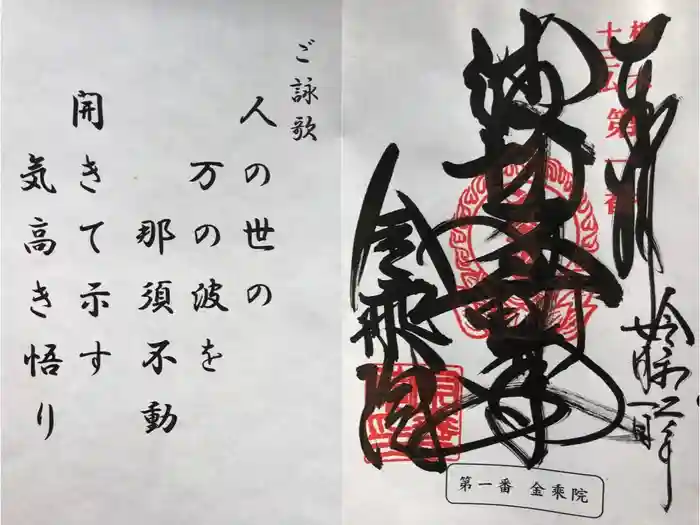 奉拝
令和二年
十三仏 第一番
金乗院
第一番 金乗院
ご詠歌
人の世の
万の波を
那須不動
開きて示す
気高き悟り